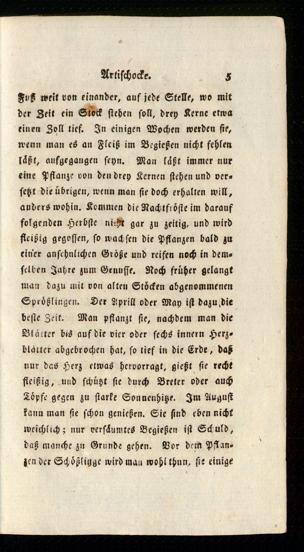 Artischocke. 5
Fuß weit von einander, auf jede Stelle, wo mit
der Zeit ein Stock stehen soll, drey Kerne etwa
einen Zoll tief. In einigen Wochen werden sie,
wenn man es an Fleiß im Begießen nicht fehlen
läßt, aufgegangen seyn. Man läßt immer nur
eine Pflanze von den drey Kernen stehen und ver-
setzt die übrigen, wenn man sie doch erhalten will,
anders wohin. Kommen die Nachtfröste im darauf
folgenden Herbste nicht gar zu zeitig, und wird
fleißig gegossen, so wachsen die Pflanzen bald zu
einer ansehnlichen Größe und reifen noch in dem-
selben Jahre zum Genusse. Noch früher gelangt
man dazu mit von alten Stöcken abgenommenen
Sprößlingen. Der Aprill oder May ist dazu die
beste Zeit. Man pflanzt sie, nachdem man die
Blätter bis auf die vier oder sechs innern Herz-
blätter abgebrochen hat, so tief in die Erde, daß
nur das Herz etwas hervorragt, gießt sie recht
fleißig, und schützt sie durch Breter oder auch
Töpfe gegen zu starke Sonnenhitze. Im August
kann man sie schon genießen. Sie sind eben nicht
weichlich; nur versäumtes Begießen ist Schuld,
daß manche zu Grunde gehen. Vor dem Pflan-
zen der Schößlinge wird man wohl thun, sie einige